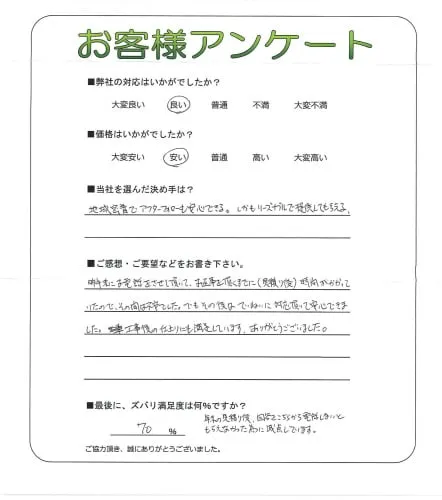 お客様アンケート
■弊社の対応はいかがでしたか？
大変良い 良い 普通 不満 大変不満
■価格はいかがでしたか？
大変安い 安い 普通 高い 大変高い
■当社を選んだ決め手は？
地域密着でアフターフォローも安心できる。しかもリーズナブルで提供してもらえる。
■ご感想・ご要望などをお書き下さい。
昨年末にお電話をさせて頂いて、お返事を頂くまでに(見積り後)時間がかかって
いたので、その間は不安でした。でもその後はていねいに対応頂いて安心できま
した。工事後の仕上りにも満足しています。ありがとうございました。
■最後に、ズバリ満足度は何％ですか？
70 ％
年末の見積り後、回答をこちらから電話しないと
もらえなかった為に減点しています。
ご協力頂き、誠にありがとうございました。